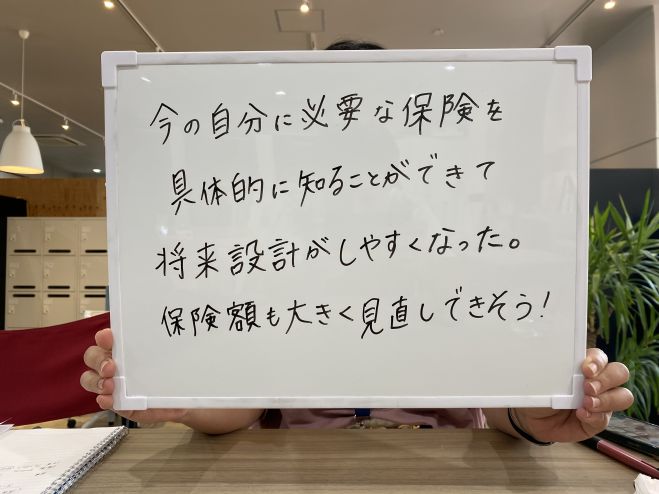 今の自分に必要な保険を
具体的に知ることができて
将来設計がしやすくなった。
保険額も大きく見直しできそう!